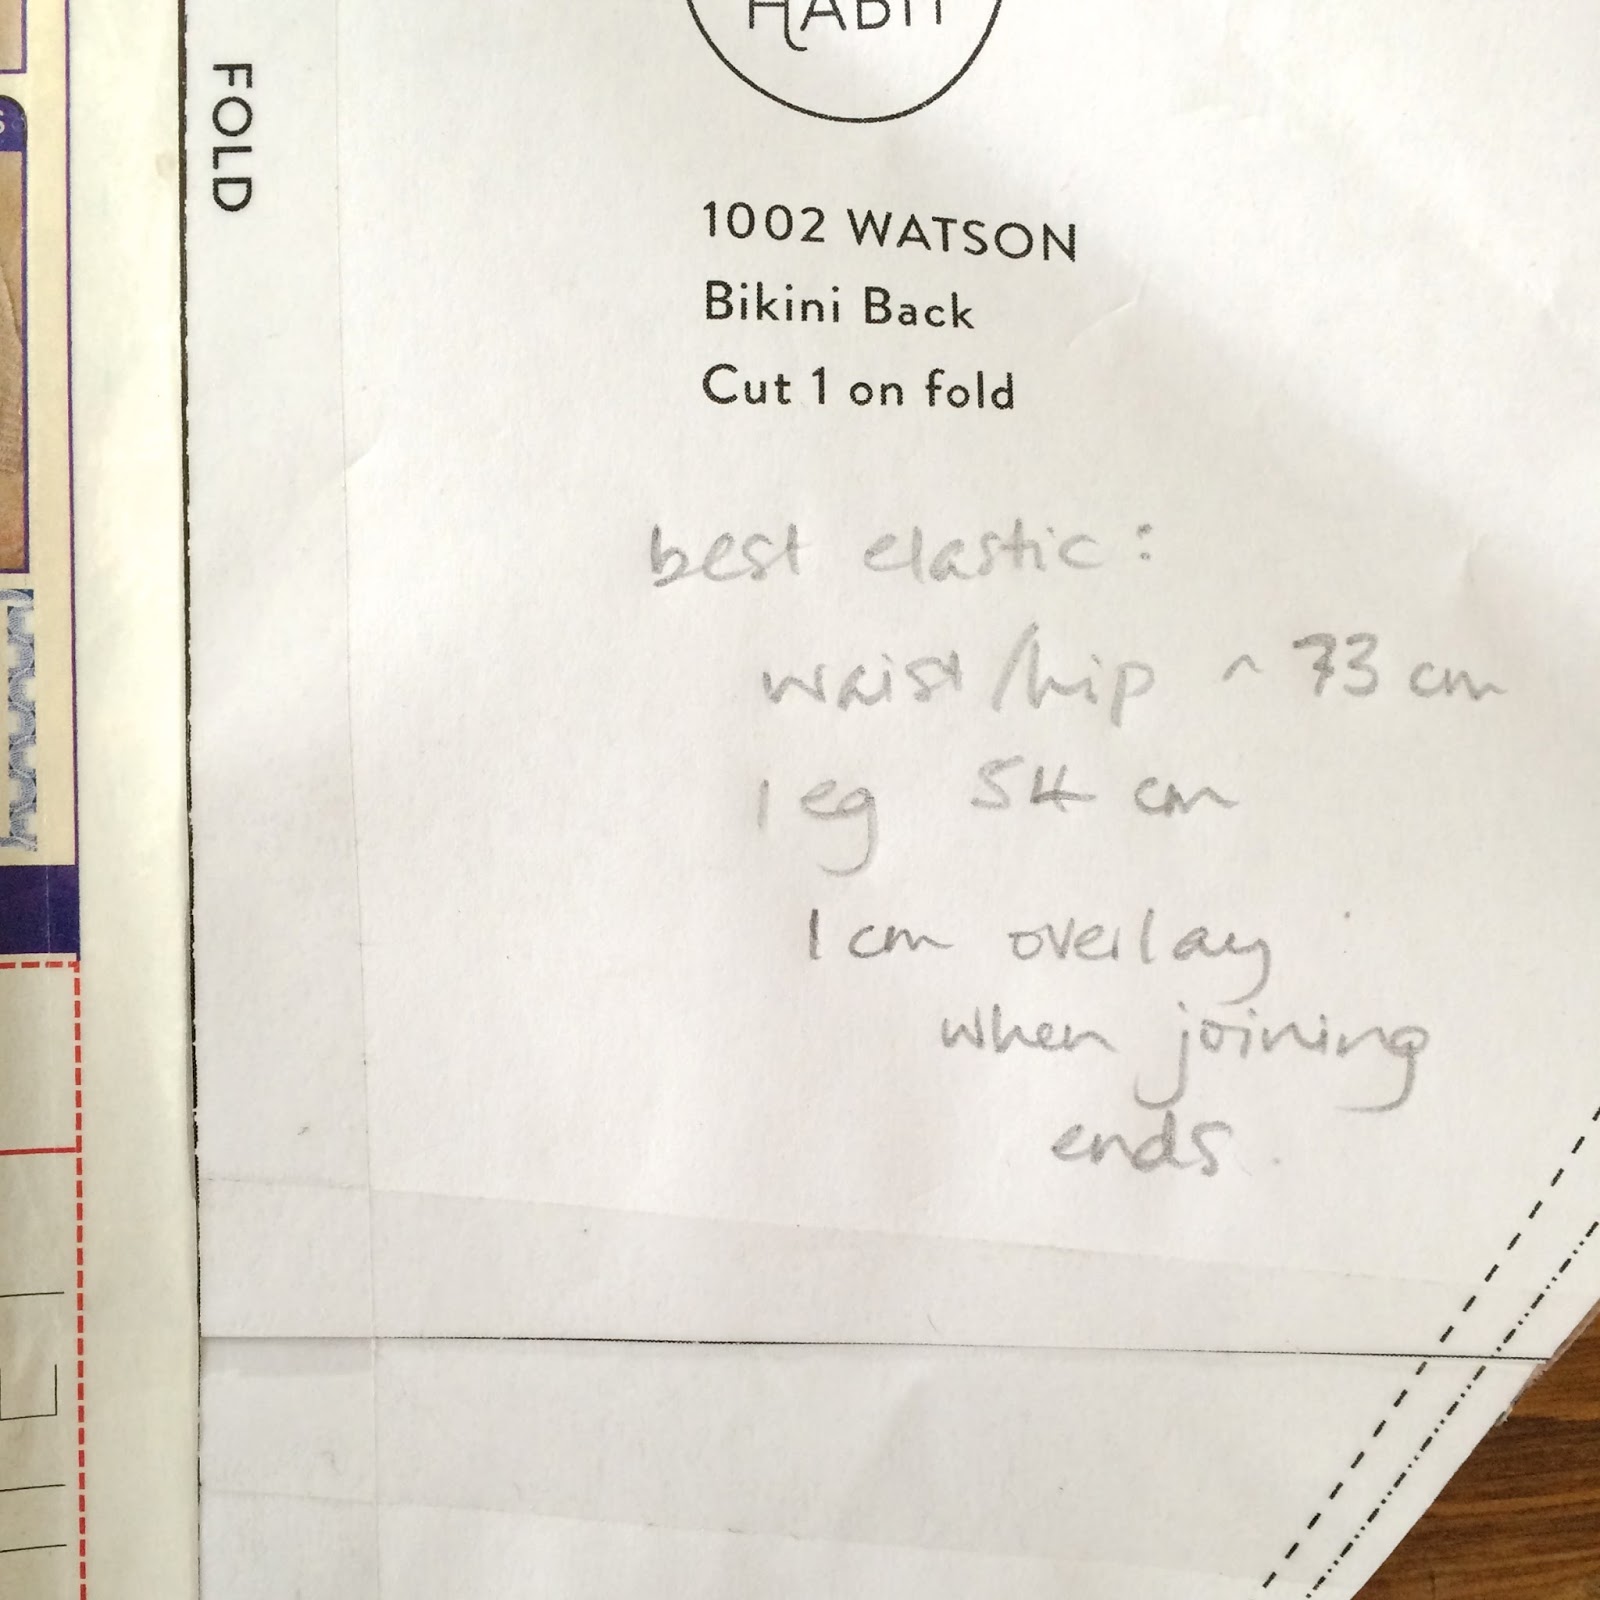 HABIT
FOLD
1002 WATSON
Bikini Back
Cut 1 on fold
best elastic:
waist/hip ~ 73 cm
leg 54 cm
1 cm overlay
when joining
ends.